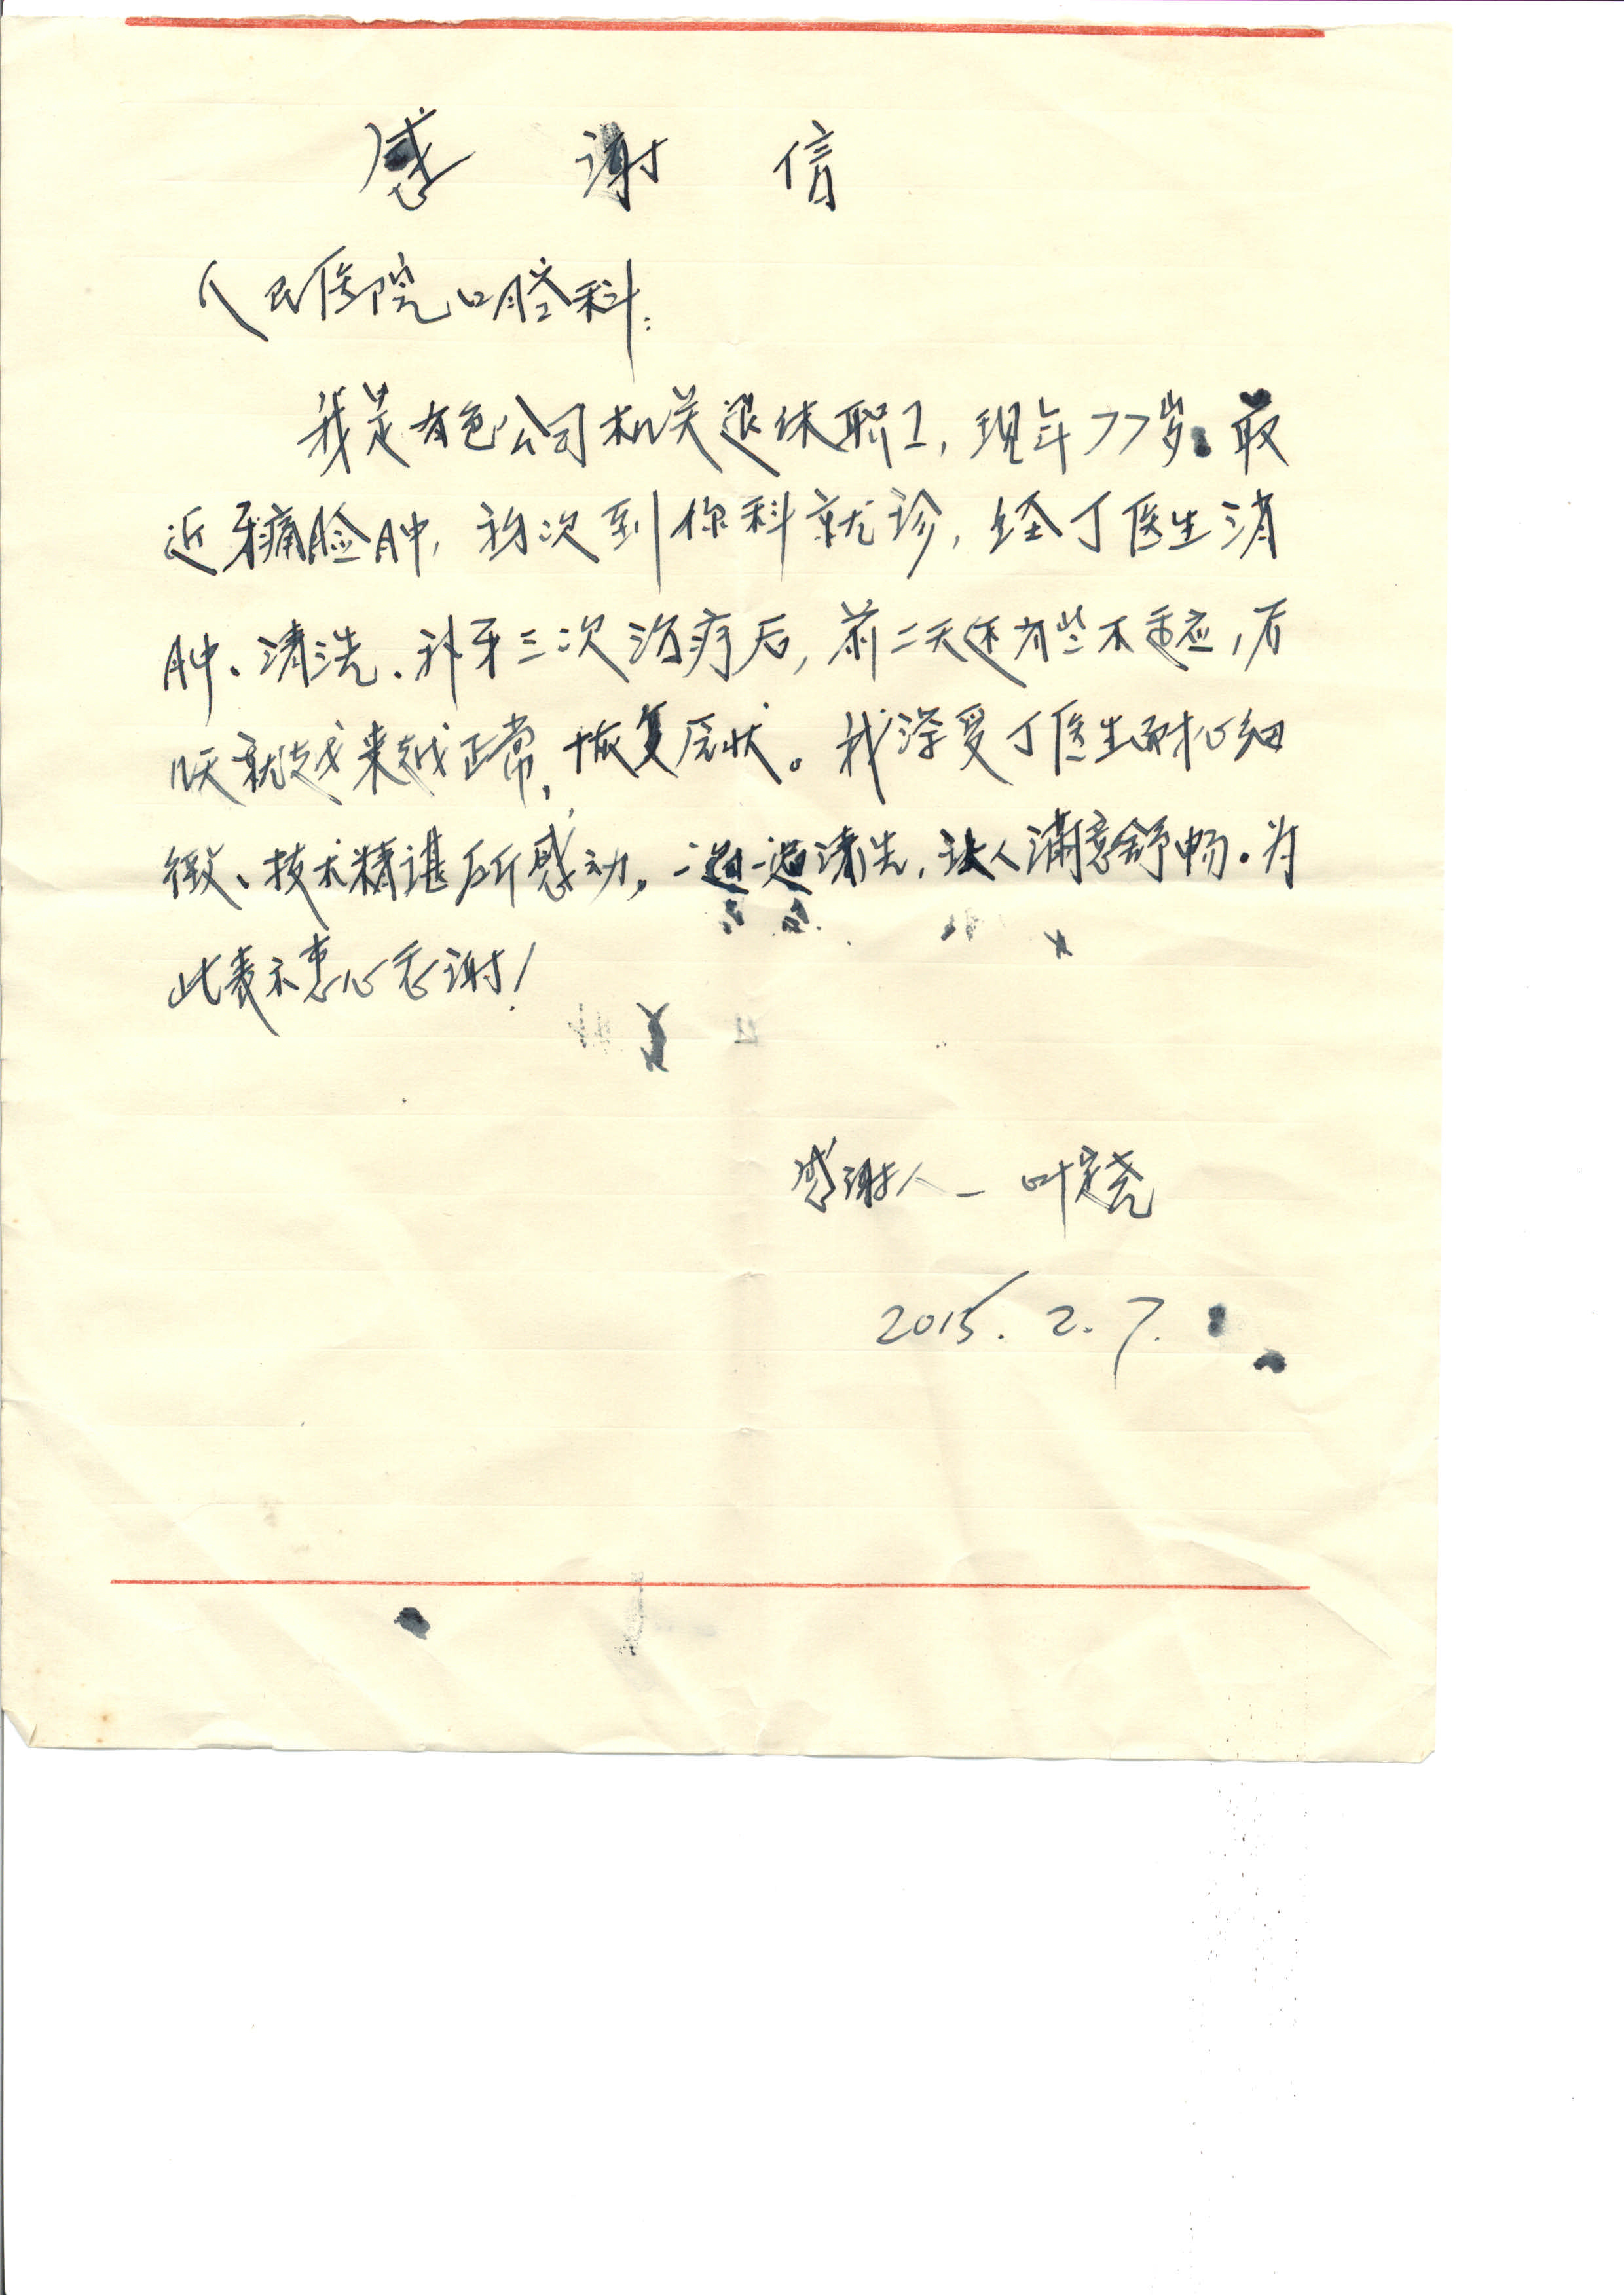 感谢信
人民医院口腔科:
我是有色公司机关退休职工,现年77岁。最
近牙痛脸肿,初次到你科就诊,经丁医生消
肿、清洗、补牙三次治疗后,前二天还有些不适应,后
几天就越来越正常,恢复原状。我深受丁医生耐心细
致、技术精谌所感动。一遍一遍清洗,让人满意舒畅。为
此表示衷心感谢!
感谢人— 叶定尧
2015.2.7.